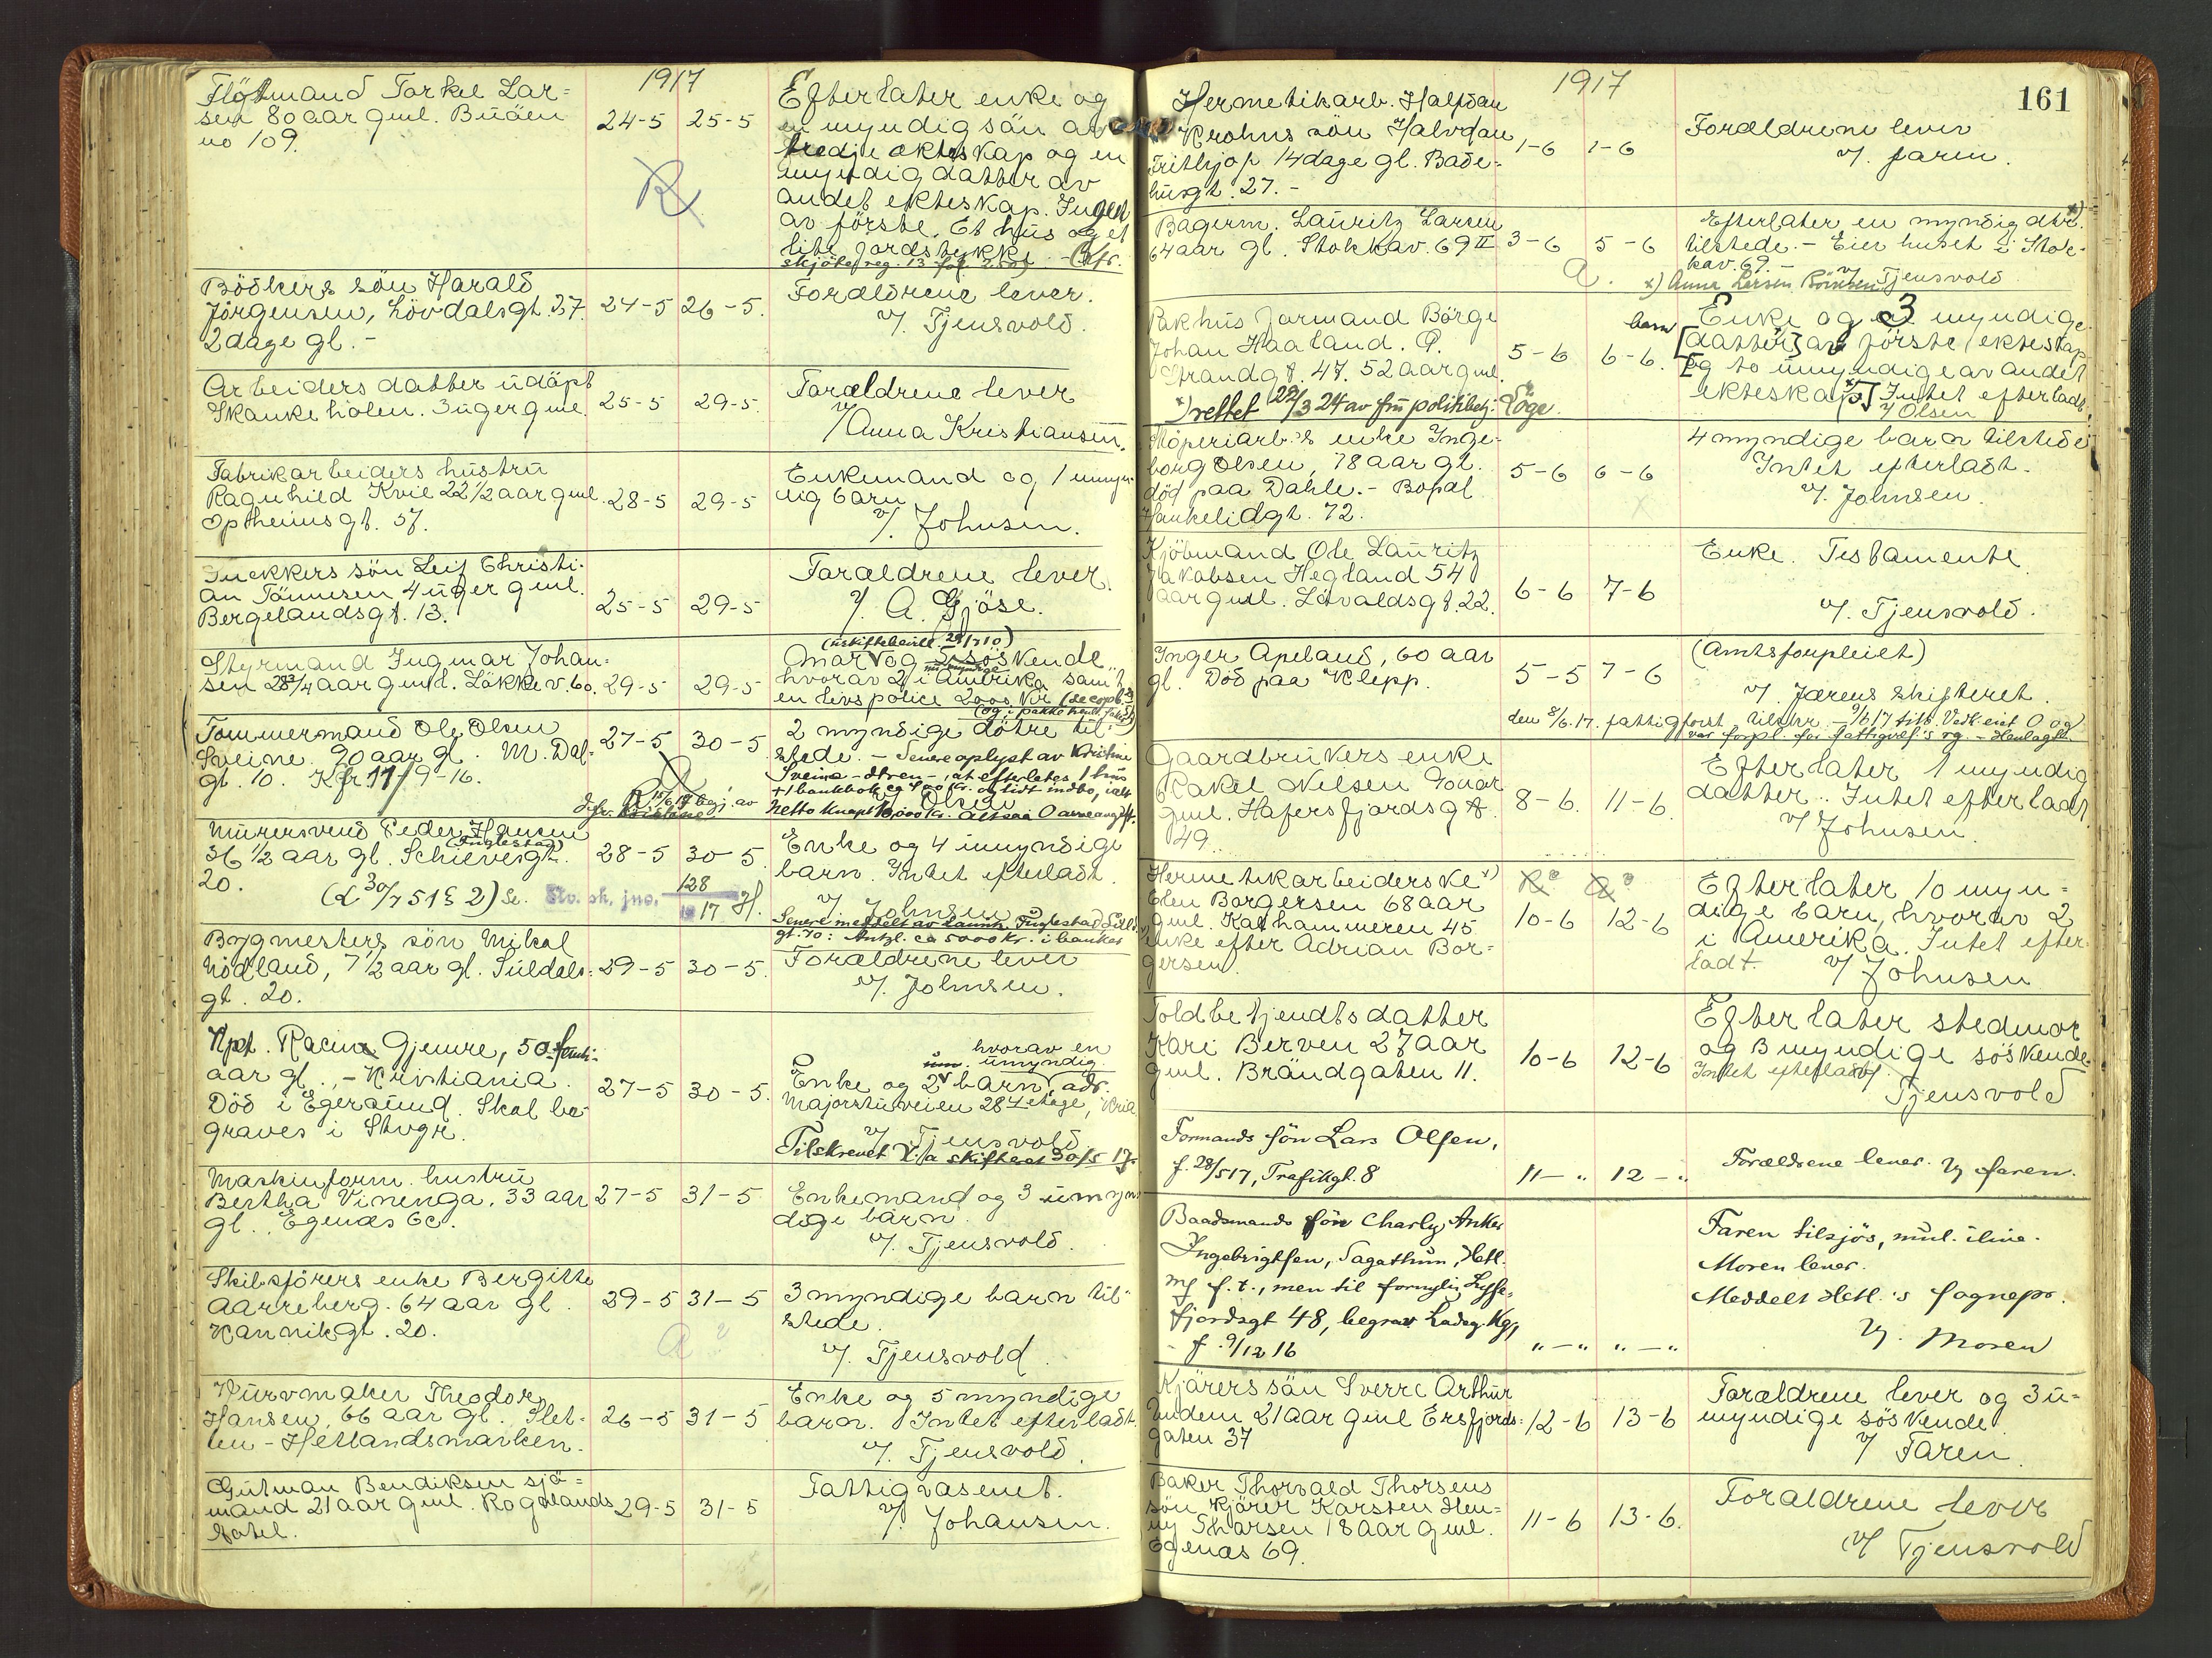 1917
Flötmand Torkel Lar=
sen 80 aar gml. Buöen
no 109.
24-5 25-5
Efterlater enke og
en myndig sön av
tredje ekteskap og en
myndig datter av
andet ekteskap. Ingen
av förste. Et hus og et
lite jordstykke
skjötereg. 13 fol.
Bödkers sön Harald
Jörgensen, Lövdalsgt. 27.
2 dage gl. -
24-5 26-5.
Foreldrene lever.
v/. Tjensvold.
Arbeiders datter udöpt
Skankeholen. 3 uger gml.
25-5 29-5.
Foreldrene lever
v/ Anna Kristiansen.
Fabrikarbeiders hustru
Ragnhild Kvie 22 1/2 aar gml.
Optheimsgt. 57.
28-5 29-5
Enkemand og 1 umyn-
dig barn
v/. Johnsen.
Snekkers sön Leif Christi-
an Tönnesen 4 uger gml.
Bergelandsgt. 13.
25-5 29-5
Foreldrene lever.
v/. A. Gjöse.
Styrmand Ingmar Johan=
sen 28 3/4 aar gml. Lökkev. 60.
29-5 29-5
Mor og 5 söskende
hvorav 2 i Amerika samt
en livspolice 2000 Kr.
Tömmermand Ole Olsen
Sveine. 90 aar gl. M. Dal-
gt. 10. Kfr 11/9-16.
27-5 30-5
2 myndige dötre til-
stede. - Senere oplyst av Kristine
Sveine - dtren -, at efterlates 1 hus
+ 1 bankbok ca 400 kr. og lidt indbo, ialt
netto knapt 10,000 kr. Altsaa 0 arveavgift.
Olsen
Murersvend Peder Hansen
(Fuglestad)
36 1/2 aar gl. Schievesgt.
20.
28-5 30-5.
(L 30/7 51 § 2) Se. Stv. sk. jno. 128
1917 H.
Enke og 4 umyndige
barn. Intet efterladt.
v/ Johnsen
Bygmesters sön Mikal
Nödland, 7 1/2 aar gl. Suldals-
gt. 20.
29-5 30-5.
Foreldrene lever
v/. Johnsen.
Kpt. Gjemre, 50-femti-
aar gl., - Kristiania.
Död i Egersund. Skal be-
graves i Stvgr.
27-5 30-5.
hvorav en
umyndig
Enke og 2 barn adr.
Majorstuveien 28 4 etage, Kria
v/ Tjensvold
Tilskrevet Kr.a skifteret 30/5 17.
Maskinform. hustru
Bertha Vinenga. 33 aar
gl. Egenäs 6c.
27-5 31-5
Enkemand og 3 umyn-
dige barn.
v/. Tjensvold.
Skibsförers enke Bergitte
Aarreberg. 64 aar gl.
Kannikgt. 20.
29-5 31-5
3 myndige barn til-
stede.
v/. Tjensvold.
Kurvmaker Theodor
Hansen, 66 aar gl. Slet-
ten - Hetlandsmarken.
26-5 31-5
Enke og 5 myndige
barn. Intet efterladt.
v/. Tjensvold.
Gutman Bendiksen sjö=
mand 21 aar gml. Rogalands
Hotel.
29-5 31-5
Fattigvesenet.
v/. Johansen.
161
1917
Hermetikarb. Halfdan
Krohns sön Halvdan
Fritjop 14 dage gl. Bade-
husgt. 27. -
1-6 1-6
Foreldrene lever
v/. faren.
Bagerm. Lauritz Larsen
64 aar gl. Stokkav. 69 II
3-6 5-6
Efterlater en myndig dtr. x)
tilstede. - Eier huset i Stok-
kav. 69. -
v/ Tjensvold
x) Anna Larsen
Pakhusformand Börge
Johan Haaland. Ö.
Strandgt. 47. 52 aar gml.
5-6 6-6.
x) rettet 22/3 24 av fru politibetj. Töge.
Enke og 3 myndige
barn
[datter] av förste ekteskap
[og to umyndige av andet
ekteskap] Intet efterladt.
v/ Olsen
Möperiarb.s enke Inge-
borg Olsen, 78 aar gl.
död paa Dahle. - Bopæl
Haukelidgt. 72.
5-6 6-6
4 myndige barn tilstede
Intet efterladt.
v/. Johnsen.
Kjöbmand Ole Lauritz
Jakobsen Hegland 54
aar gml. Lövaldsgt. 22.
6-6 7-6
Enke. Testamente.
v/. Tjensvold.
Inger Apeland, 60 aar
gl. Död paa Klepp.
5-5 7-6
(Amtsforpleiet)
v/ Jærens skifteret.
Gaardbrukers enke
Rakel Nilsen 90 aar
gml. Hafersfjordsgt
49.
8-6. 11-6.
Efterlater 1 myndig
datter. Intet efterladt.
v/ Johnsen
Hermetikarbeiderske x)
Elen Borgersen 68 aar
gml. Kathammeren 45
enke efter Adrian Bor=
gersen.
10-6 12-6
Efterlater 10 myn=
dige barn, hvorav 2
i Amerika. Intet efter-
ladt. v/ Johnsen
Toldbetjendts datter
Kari Berven 27 aar
gml. Brändgaten 11.
10-6 12-6
Efterlater stedmor
og 3 myndige söskende.
Intet efterladt v/.
Tjensvold
Formands sön Lars Olsen,
f. 28/5 17, Trafikgt. 8
11-" 12-"
Foreldrene lever. v/ faren.
Baadsmands sön Charly Anker
Ingebrigtsen, Sagathun, Hetl.
f. t., men til fornylig Lysse-
fjordsgt 48, begrav Ladeg. Kg,
f. 9/12 16
"-" "-"
Faren tilsjös, mul. ilive.
Moren lever.
Meddelt Hetl.'s sognepr.
v/. Moren
Kjörers sön Sverre Arthur
Undem 21 aar gml Ersfjords-
gaten 37
12-6 13-6
Foreldrene lever og 3 u-
myndige söskende.
v/ Faren.
Baker Thorvald Thorsens
sön Kjörer Karsten Hen-
ny Thorsen 18 aar gml.
Egenæs 69.
11-6 13-6.
Foreldrene lever
v/ Tjensvold